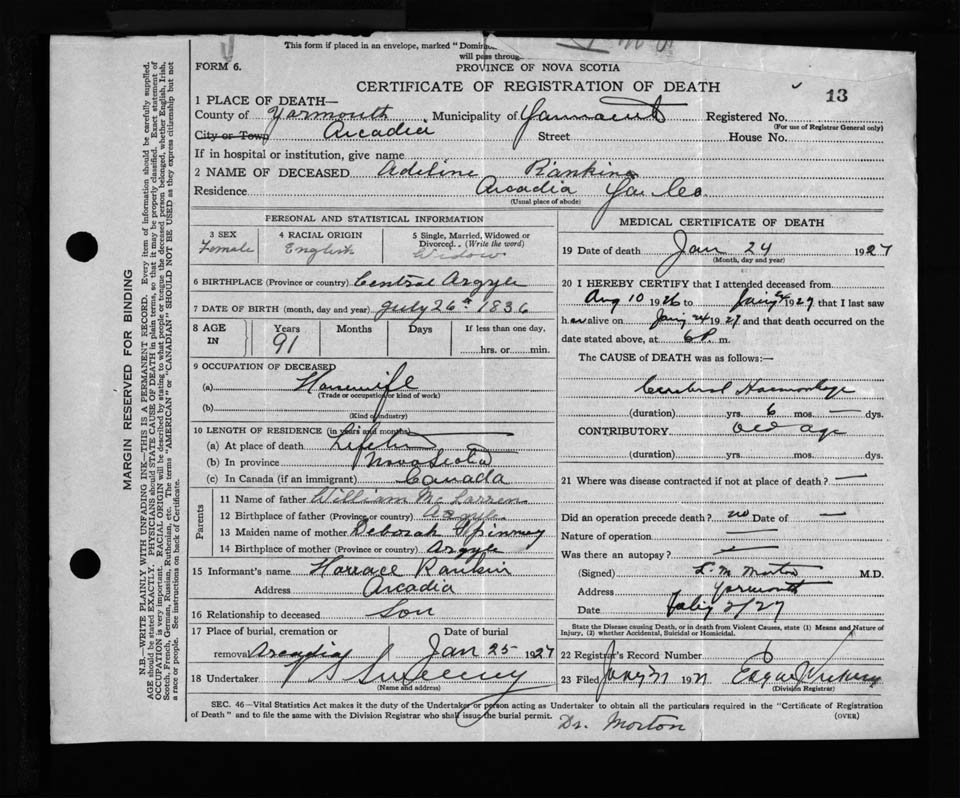 This form if placed in an envelope, marked "Domin
will pass throug
FORM 6.
PROVINCE OF NOVA SCOTIA
CERTIFICATE OF REGISTRATION OF DEATH
13
1 PLACE OF DEATH—
County of Yarmouth Municipality of Yarmouth Registered No.
(For use of Registrar General only)
City or Town Arcadia Street House No.
If in hospital or institution, give name
2 NAME OF DECEASED Adeline Rankine
Residence Arcadia Yar Co
(Usual place of abode)
PERSONAL AND STATISTICAL INFORMATION
3 SEX 4 RACIAL ORIGIN 5 Single, Married, Widowed or Divorced. (Write the word)
Female English Widow
6 BIRTHPLACE (Province or country) Central Argyle
7 DATE OF BIRTH (month, day and year) July 26th 1836
8 AGE IN Years Months Days If less than one day,
91 hrs. or min.
9 OCCUPATION OF DECEASED
(a) Housewife
(Trade or occupation or kind of work)
(b)
(Kind of industry)
10 LENGTH OF RESIDENCE (in years and months)
(a) At place of death Lifetime
(b) In province Nova Scotia
(c) In Canada (if an immigrant) Canada
Parents
11 Name of father William McLarren
12 Birthplace of father (Province or country) Argyle
13 Maiden name of mother Deborah Spinney
14 Birthplace of mother (Province or country) Argyle
15 Informant's name Horrace Rankin
Address Arcadia
16 Relationship to deceased Son
17 Place of burial, cremation or removal Arcadia
Date of burial Jan 25 1927
18 Undertaker Sweeney
(Name and address)
MEDICAL CERTIFICATE OF DEATH
19 Date of death Jan 24 1927
(Month, day and year)
20 I HEREBY CERTIFY that I attended deceased from
Aug 10 1926 to Jany 24 1927 that I last saw
her alive on Jany 24 1927 and that death occurred on the
date stated above, at 6 P. m.
The CAUSE of DEATH was as follows:—
Cerebral Haemorrhage
(duration) yrs. 6 mos. — dys.
CONTRIBUTORY Old age
(duration) yrs. mos. dys.
21 Where was disease contracted if not at place of death? —
Did an operation precede death? no Date of —
Nature of operation —
Was there an autopsy? —
(Signed) L. M. Morton M.D.
Address Yarmouth
Date 2/27
State the Disease causing Death, or in death from Violent Causes, state (1) Means and Nature of
Injury, (2) whether Accidental, Suicidal or Homicidal.
22 Registrar's Record Number
23 Filed 19 Edgar
(Division Registrar)
SEC. 46—Vital Statistics Act makes it the duty of the Undertaker or person acting as Undertaker to obtain all the particulars required in the "Certificate of Registration
of Death" and to file the same with the Division Registrar who shall issue the burial permit.
(OVER)
Dr. Morton
MARGIN RESERVED FOR BINDING
N.B.—WRITE PLAINLY WITH UNFADING INK—THIS IS A PERMANENT RECORD. Every item of information should be carefully supplied.
AGE should be stated EXACTLY. PHYSICIANS should STATE CAUSE OF DEATH in plain terms, so that it may be properly classified. Exact statement of
OCCUPATION is very important. RACIAL ORIGIN will be described by stating to what people or tongue the deceased person belonged, whether English, Irish,
Scotch, French, German, Russian, Ruthenian, etc. The terms "AMERICAN" or "CANADIAN" SHOULD NOT BE USED as they express citizenship but not
a race or people. See instructions on back of Certificate.